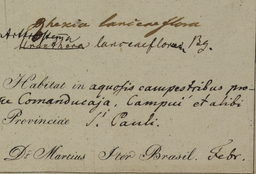 Rhexia lanceaeflora
Arthrostemma
lanceaeflorum Bg.
Habitat in aquosis campestribus pro-
pe Comanducaja, Campuí et alibi
Provinciae St. Pauli.
Dr. Martius Iter Brasil. Febr.